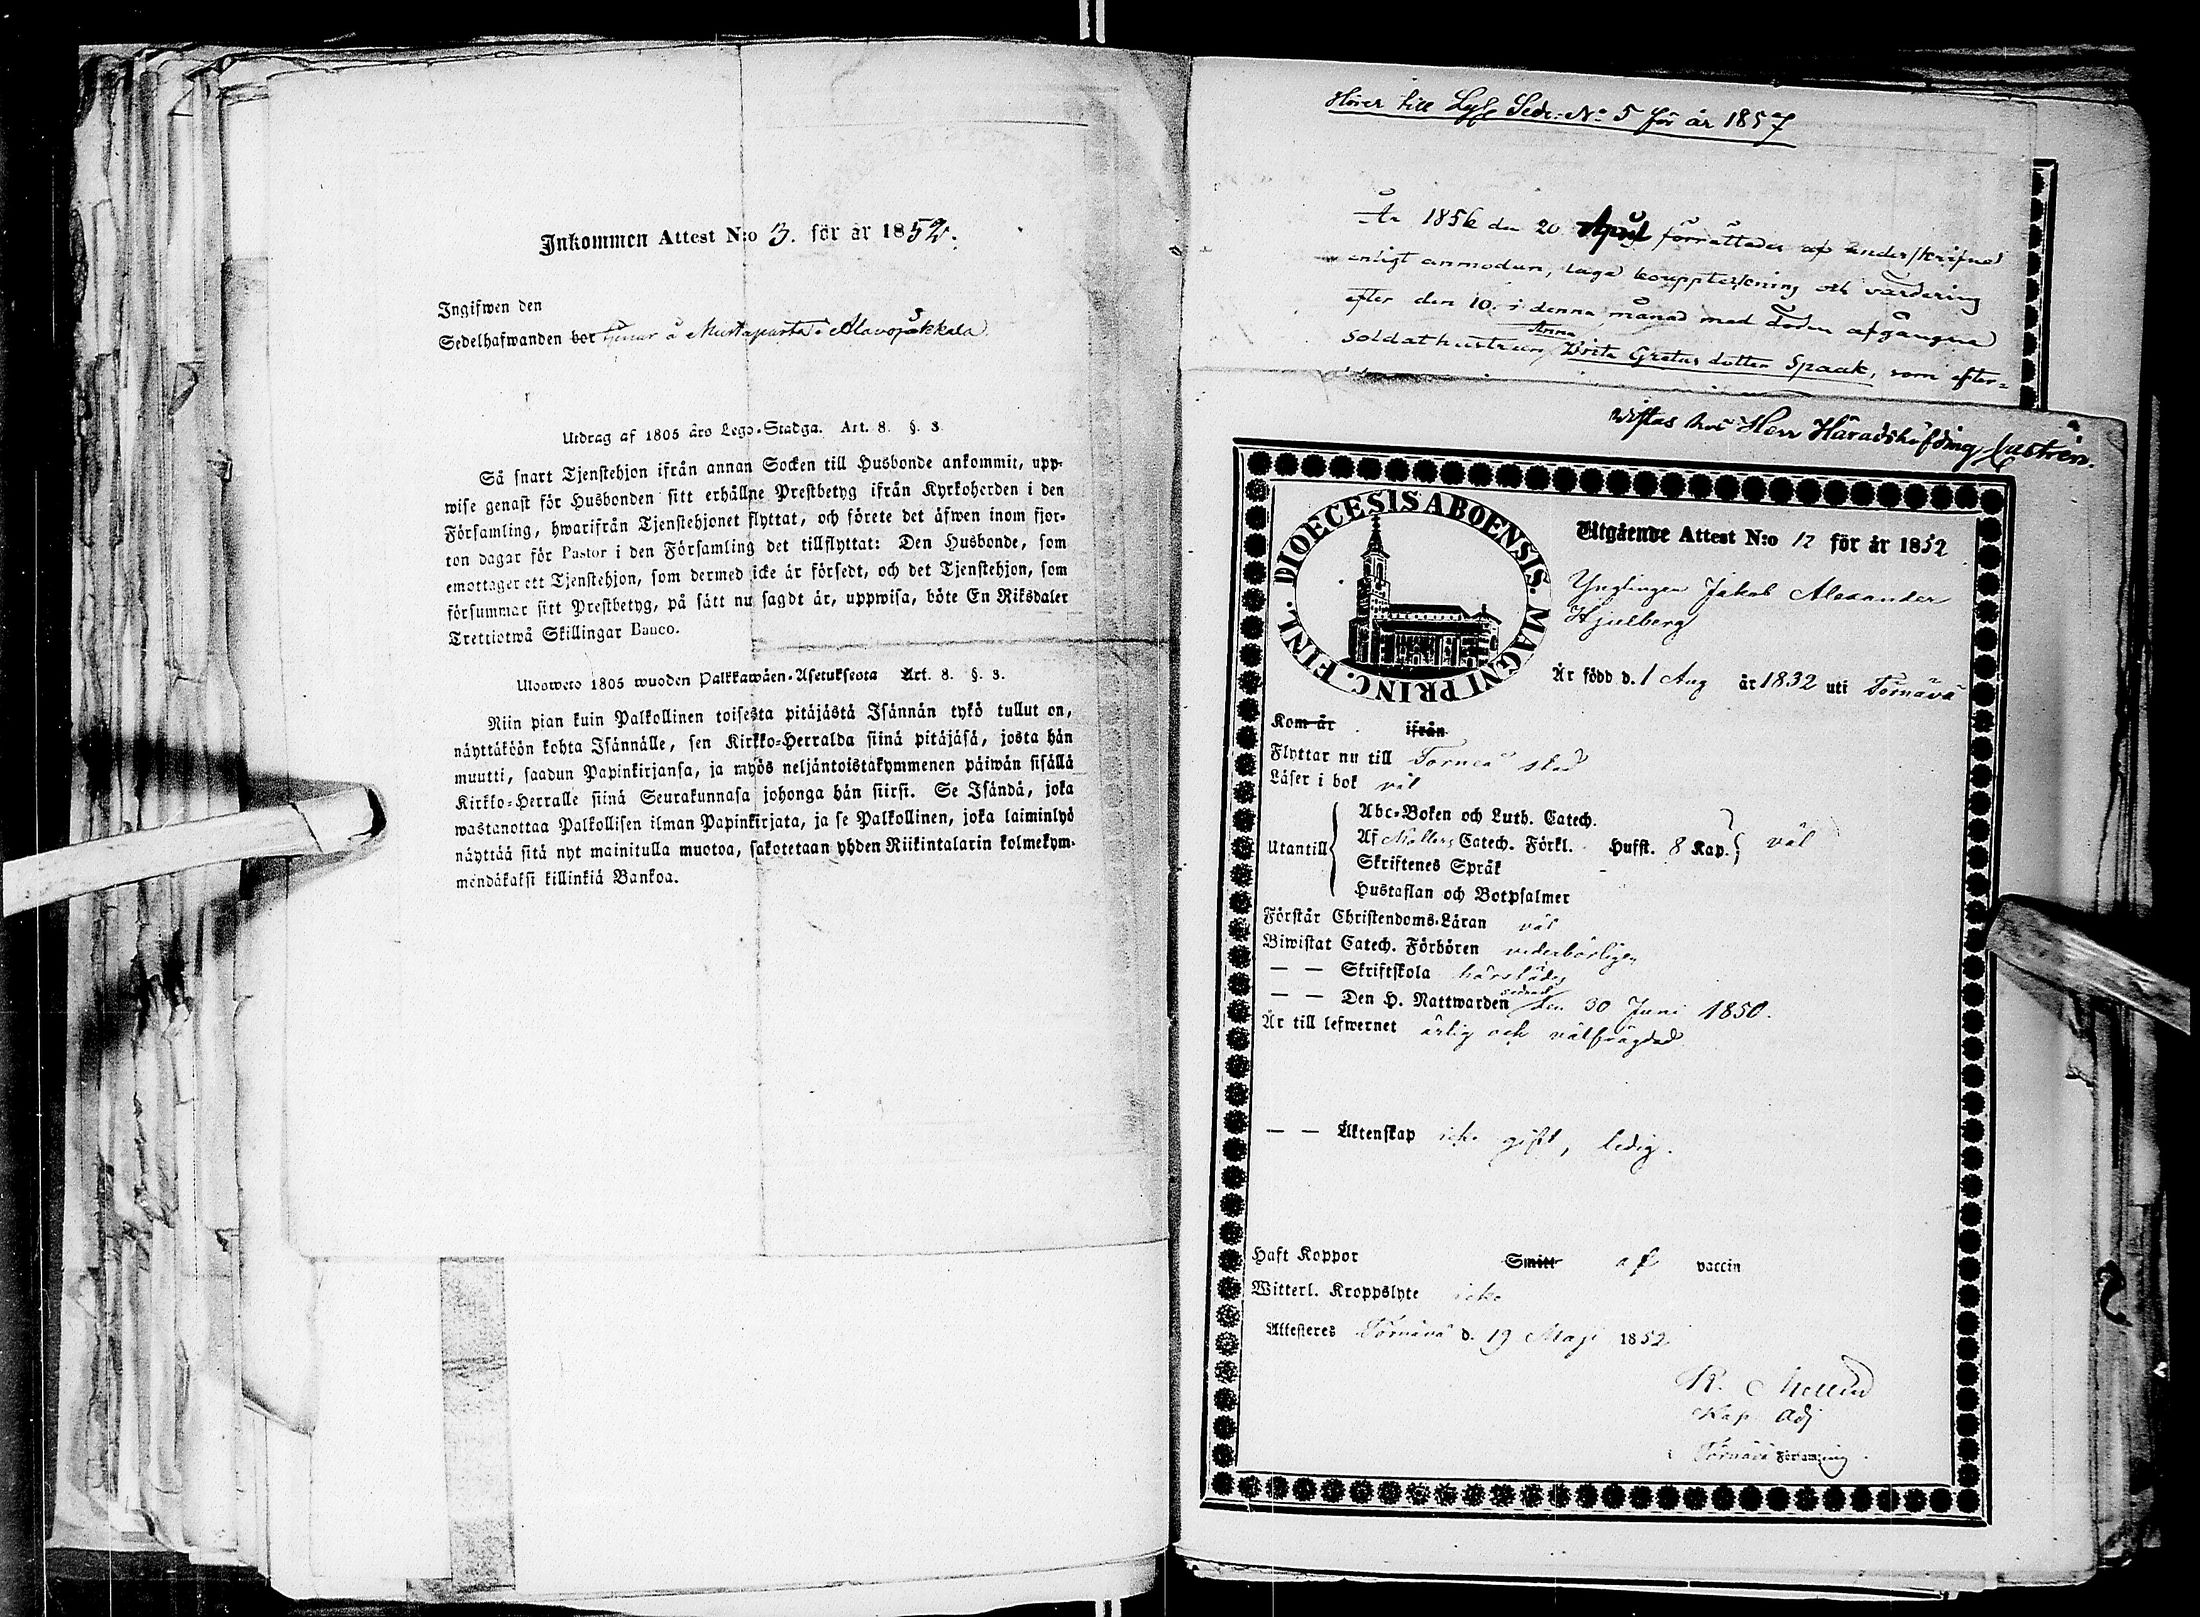 Inkommen Attest N:o 3. för år 1852.
Ingifwen den
Sedelhafwanden bor tjenar å Mustaparta i Alavojakkala
Utdrag af 1805 års Lego-Stadga. Art. 8. §. 3.
Så snart Tjenstehjon ifrån annan Socken till Husbonde ankommit, upp-
wise genast för Husbonden sitt erhållne Prestbetyg ifrån Kyrkoherden i den
Församling, hwarifrån Tjenstehjonet flyttat, och förete det äfwen inom fjor-
ton dagar för Pastor i den Församling det tillflyttat: Den Husbonde, som
emottager ett Tjenstehjon, som dermed icke är försedt, och det Tjenstehjon, som
försummar sitt Prestbetyg, på sätt nu sagdt är, uppwisa, böte En Riksdaler
Trettiotwå Skillingar Banco.
Uloswето 1805 wuoden Palkkawäen-Asetuksesta Art. 8. §. 3.
Niin pian kuin Palkollinen toisesta pitäjästä Isännän tykö tullut on,
näyttäköön kohta Isännälle, sen Kirkko-Herralda siinä pitäjäsä, josta hän
muutti, saadun Papinkirjansa, ja myös neljäntoistakymmenen päiwän sisällä
Kirkko-Herralle siinä Seurakunnasa johonga hän siirsi. Se Isändä, joka
wastanottaa Palkollisen ilman Papinkirjata, ja se Palkollinen, joka laiminlyö
näyttää sitä nyt mainitulla muotoa, sakotetaan yhden Riikintalarin kolmekym-
mendäkaksi killinkiä Bankoa.
Hörer till Sedr: No 5 för år 1857
År 1856 den 20 April förrättades af underskrifned
enligt anmodan, laga bouppteckning och värdering
efter den 10. i denna månad med döden afgångna
Anna
Soldathustrun Brita Gretas dotter Spaak, som efter-
wistas hos Herr Häradshöfding Castrén.
DIOECESIS ABOENSIS. MAGNI PRINC. FINL.
Utgående Attest N:o 12 för år 1852
Ynglingen Jakob Alexander
Hjulberg
Är född d. 1 Aug år 1832 uti Törnävä
Kom år ifrån
Flyttar nu till Torneå stad
Läser i bok väl
Abc-Boken och Luth. Catech.
Utantill Af Möllers Catech. Förkl. Husst. 8 Kap. väl
Skriftenes Språk
Hustaflan och Botpsalmer
Förstår Christendoms-Läran väl
Biwistat Catech. Förhören vederbörligen
— — Skriftskola härstädes
sednast
— — Den H. Nattwarden den 30 Juni 1850.
Är till lefwernet ärlig och välfrägdad
— — Äktenskap icke gift, ledig.
Haft Koppor Smitt af vaccin
Witterl. Kroppslyte icke
Attesteres Törnävä d. 19 Maji 1852
K. Mellin
Kap Adj
i Törnävä Församling.